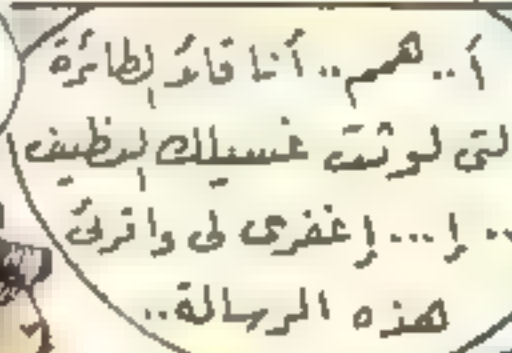 أ.. همم.. أنا قائد الطائرة
التى لوثت غسيلك النظيف
.. إ... إغفرى لى واقرئى
هذه الرسالة..